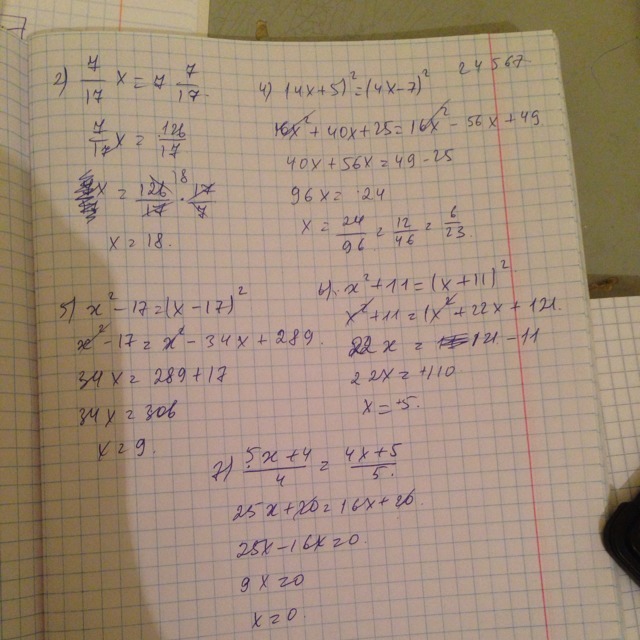 24567.
2) 7/17 x = 7 7/17.
7/17 x = 126/17
x = 126/17 · 17/7 18
x = 18.
4) (4x+5)² = (4x-7)²
16x² + 40x + 25 = 16x² - 56x + 49
40x + 56x = 49 - 25
96x = 24
x = 24/96 = 12/46 = 6/23.
5) x² - 17 = (x - 17)²
x² - 17 = x² - 34x + 289.
34x = 289 + 17
34x = 306
x = 9.
6) x² + 11 = (x + 11)²
x² + 11 = (x² + 22x + 121.
22x = 121 - 11
22x = +110
x = -5.
7) 5x+4/4 = 4x+5/5.
25x + 20 = 16x + 20.
25x - 16x = 0.
9x = 0
x = 0.